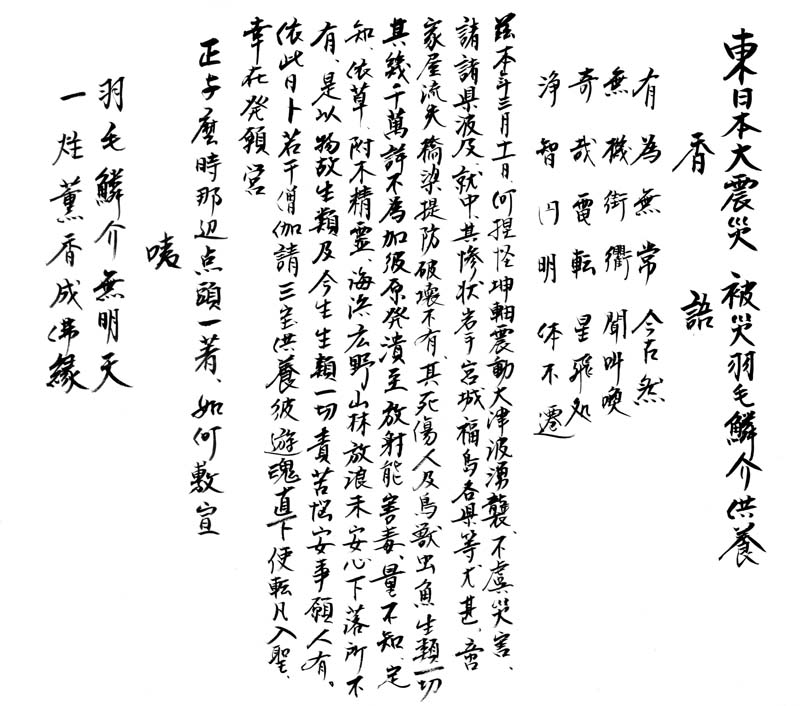 東日本大震災 被災羽毛鱗介供養
香語
有為無常今古然
無機街衢聞叫喚
奇哉電転星飛処
浄智円明体不遷
茲本年三月十一日、何捏怪坤軸震動大津波湧襲、不虞災害、
諸諸県波及、就中、其惨状岩手宮城福島各県等尤甚、
家屋流失橋梁提防破壊不有、其死傷人及鳥獣虫魚生類一切
其幾千萬許不為加須原発潰至放射能害毒、量不知、定
知、依草、附木精霊、海浜広野山林放浪未安心下落所不
有、是以物故生類及今生生類一切責苦悩安事願人有。
依此日卜若干僧伽請三宝供養彼遊魂直下便転凡入聖、
幸在発願宮
正与麼時那辺点頭一著、如何敷宣
咦
羽毛鱗介無明天
一炷薫香成佛縁